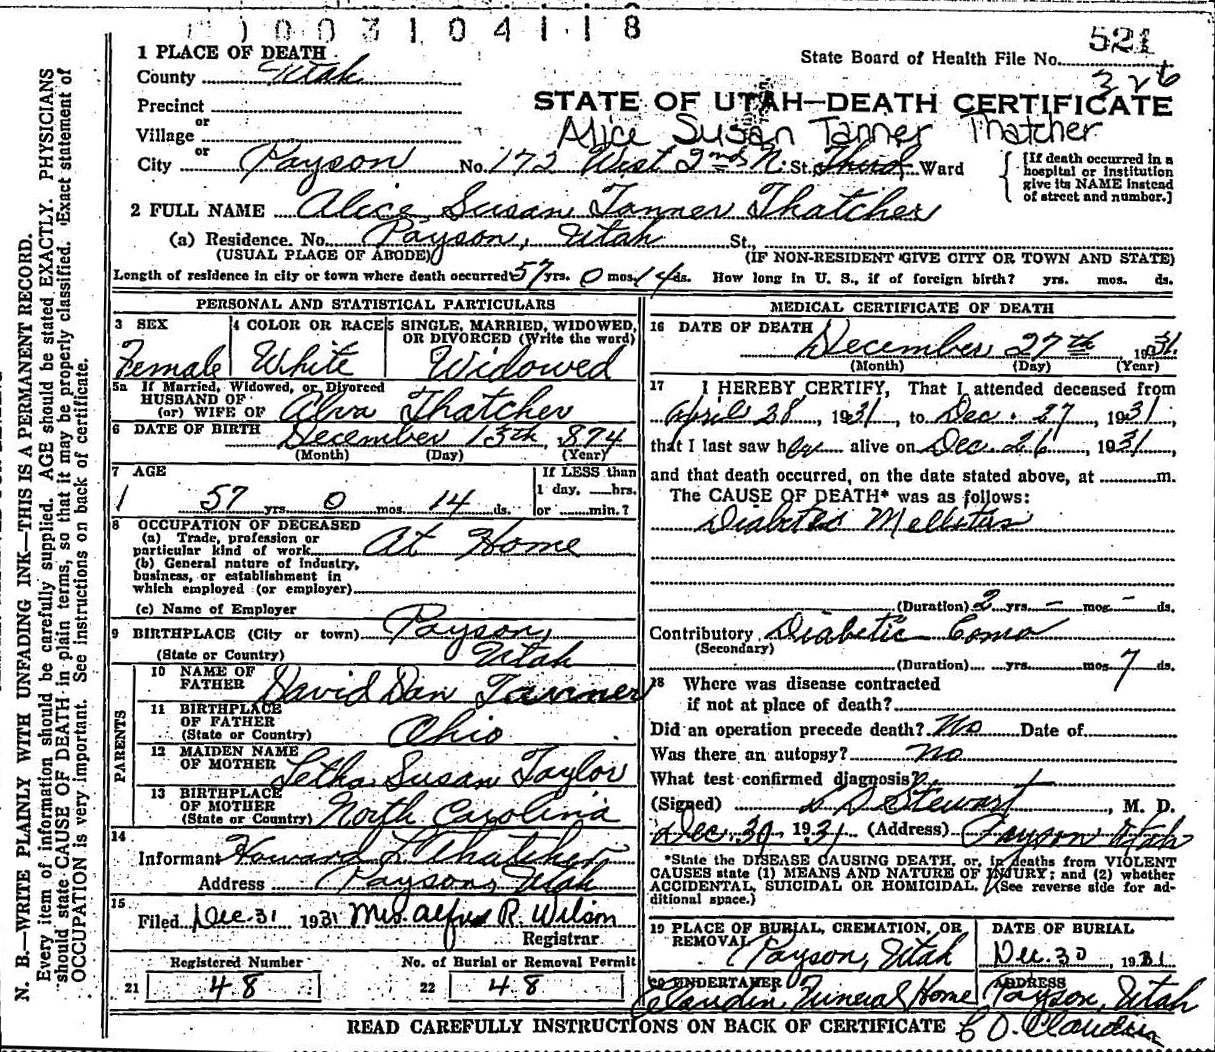 1003104118
521
State Board of Health File No.
326
1 PLACE OF DEATH
County Utah
Precinct
or
Village
or
City Payson No. 172 West 2nd N. St. Third Ward
STATE OF UTAH—DEATH CERTIFICATE
Alice Susan Tanner Thatcher
[If death occurred in a
hospital or institution
give its NAME instead
of street and number.]
2 FULL NAME Alice Susan Tanner Thatcher
(a) Residence. No. Payson, Utah St.,
(USUAL PLACE OF ABODE) (IF NON-RESIDENT GIVE CITY OR TOWN AND STATE)
Length of residence in city or town where death occurred 57 yrs. 0 mos. 14 ds. How long in U. S., if of foreign birth? yrs. mos. ds.
PERSONAL AND STATISTICAL PARTICULARS
3 SEX
Female
4 COLOR OR RACE
White
5 SINGLE, MARRIED, WIDOWED,
OR DIVORCED (Write the word)
Widowed
5a If Married, Widowed, or Divorced
HUSBAND OF
(or) WIFE OF Alva Thatcher
6 DATE OF BIRTH December 13th, 874
(Month) (Day) (Year)
7 AGE
57 yrs. 0 mos. 14 ds.
If LESS than
1 day, hrs.
or min.?
8 OCCUPATION OF DECEASED
(a) Trade, profession or
particular kind of work At Home
(b) General nature of Industry,
business, or establishment in
which employed (or employer)
(c) Name of Employer
9 BIRTHPLACE (City or town) Payson,
(State or Country) Utah
PARENTS
10 NAME OF
FATHER David Dan Tanner
11 BIRTHPLACE
OF FATHER
(State or Country) Ohio
12 MAIDEN NAME
OF MOTHER Letha Susan Taylor
13 BIRTHPLACE
OF MOTHER
(State or Country) North Carolina
14
Informant Howard L Thatcher
Address Payson, Utah
15
Filed Dec. 31 1931 Mrs. Alfred R. Wilson
Registrar
Registered Number
21 48
No. of Burial or Removal Permit
22 48
MEDICAL CERTIFICATE OF DEATH
16 DATE OF DEATH
December 27th, 1931
(Month) (Day) (Year)
17 I HEREBY CERTIFY, That I attended deceased from
April 28, 1931, to Dec. 27, 1931,
that I last saw her alive on Dec. 26, 1931,
and that death occurred, on the date stated above, at m.
The CAUSE OF DEATH* was as follows:
Diabetes Mellitus
(Duration) 2 yrs. – mos. – ds.
Contributory Diabetic Coma
(Secondary)
(Duration) yrs. mos. 7 ds.
18 Where was disease contracted
if not at place of death?
Did an operation precede death? No Date of
Was there an autopsy? no
What test confirmed diagnosis?
(Signed) L D Stewart, M. D.
Dec. 30 1931 (Address) Payson Utah
*State the DISEASE CAUSING DEATH, or, in deaths from VIOLENT
CAUSES state (1) MEANS AND NATURE OF INJURY; and (2) whether
ACCIDENTAL, SUICIDAL OR HOMICIDAL. (See reverse side for ad-
ditional space.)
19 PLACE OF BURIAL, CREMATION, OR
REMOVAL
Payson, Utah
DATE OF BURIAL
Dec. 30, 1931
20 UNDERTAKER
Claudin Funeral Home
ADDRESS
Payson, Utah
C O. Claudin
READ CAREFULLY INSTRUCTIONS ON BACK OF CERTIFICATE
N. B.—WRITE PLAINLY WITH UNFADING INK—THIS IS A PERMANENT RECORD.
Every item of information should be carefully supplied. AGE should be stated EXACTLY. PHYSICIANS
should state CAUSE OF DEATH in plain terms, so that it may be properly classified. Exact statement of
OCCUPATION is very important. See instructions on back of certificate.